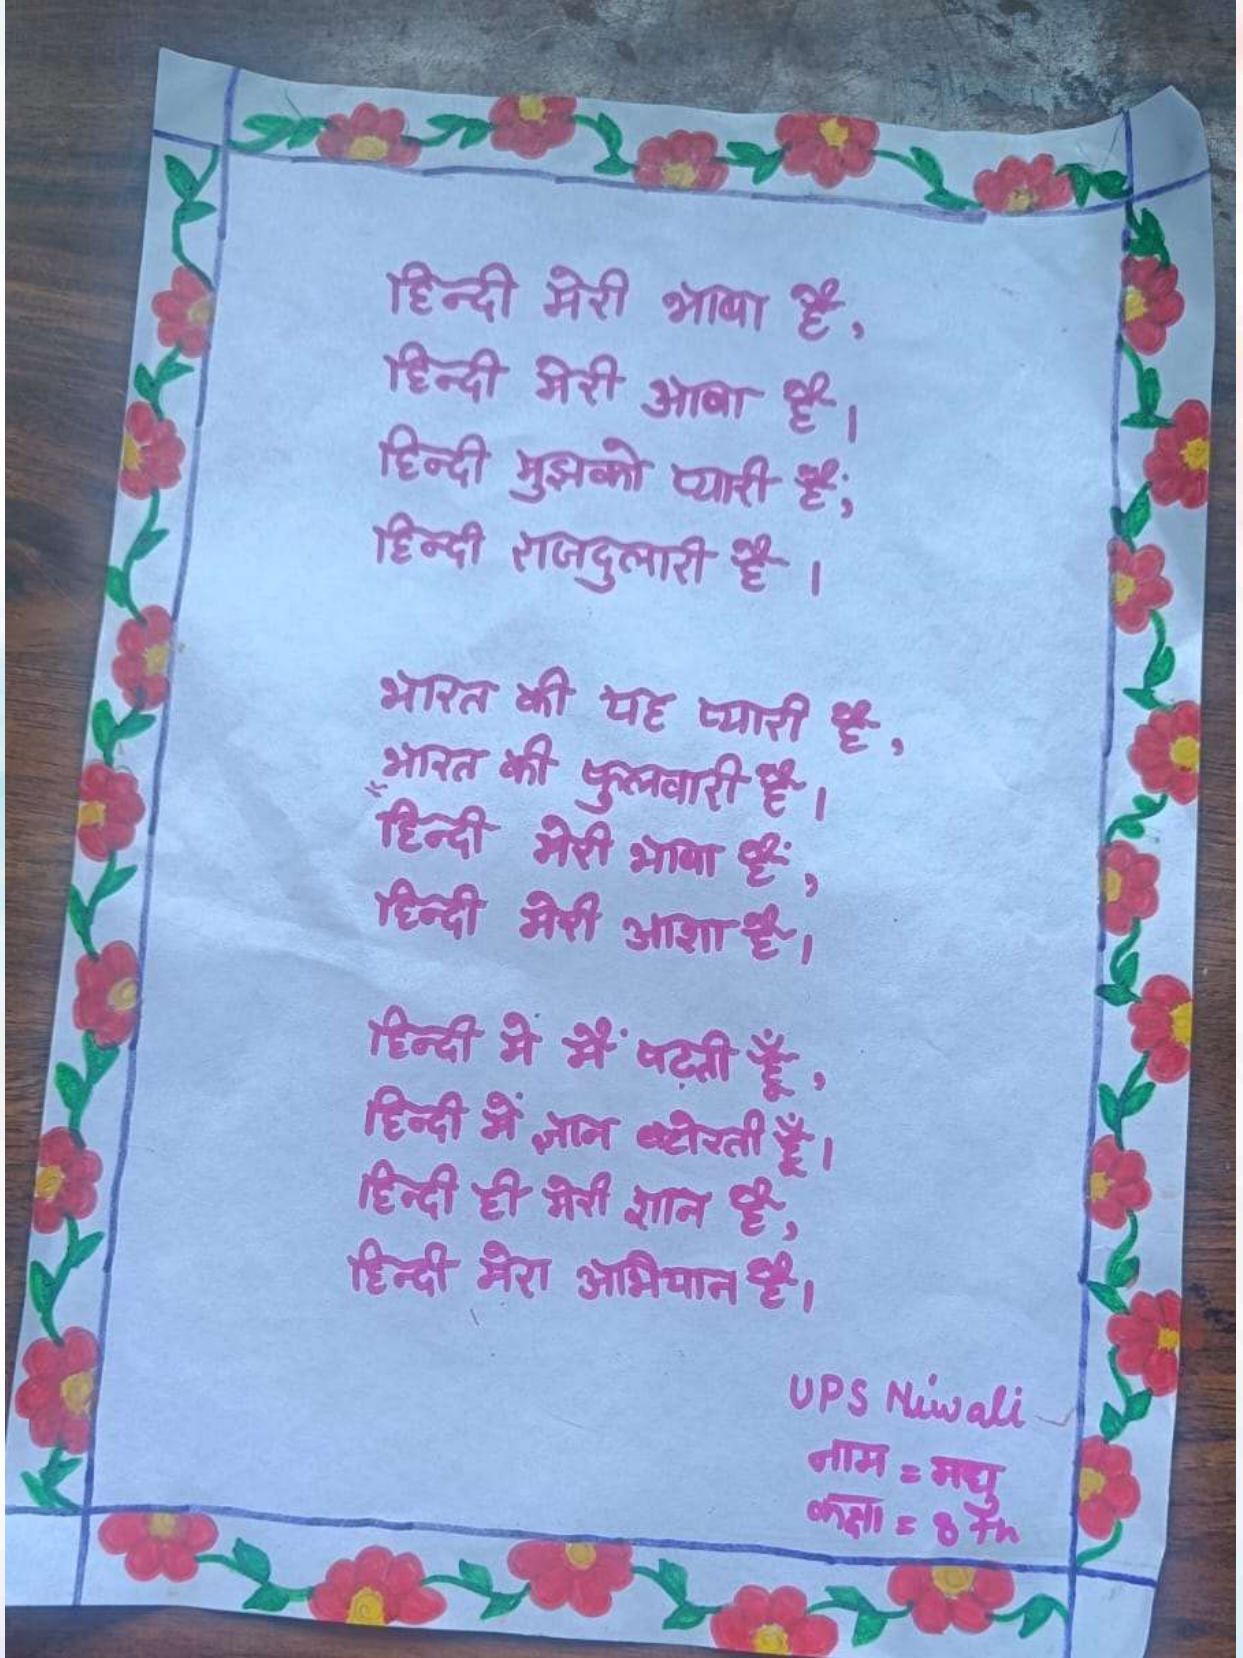 हिन्दी मेरी भाषा है,
हिन्दी मेरी आषा है।
हिन्दी मुझको प्यारी हैं,
हिन्दी राजदुलारी है।
भारत की यह प्यारी है,
भारत की फुलवारी है।
हिन्दी मेरी भाषा हैं,
हिन्दी मेरी आशा है।
हिन्दी में मैं पढ़ती हूँ,
हिन्दी में ज्ञान बटोरती हूँ।
हिन्दी ही मेरी शान है,
हिन्दी मेरा अभियान है।
UPS Niwali
नाम = मधु
कक्षा = 8th